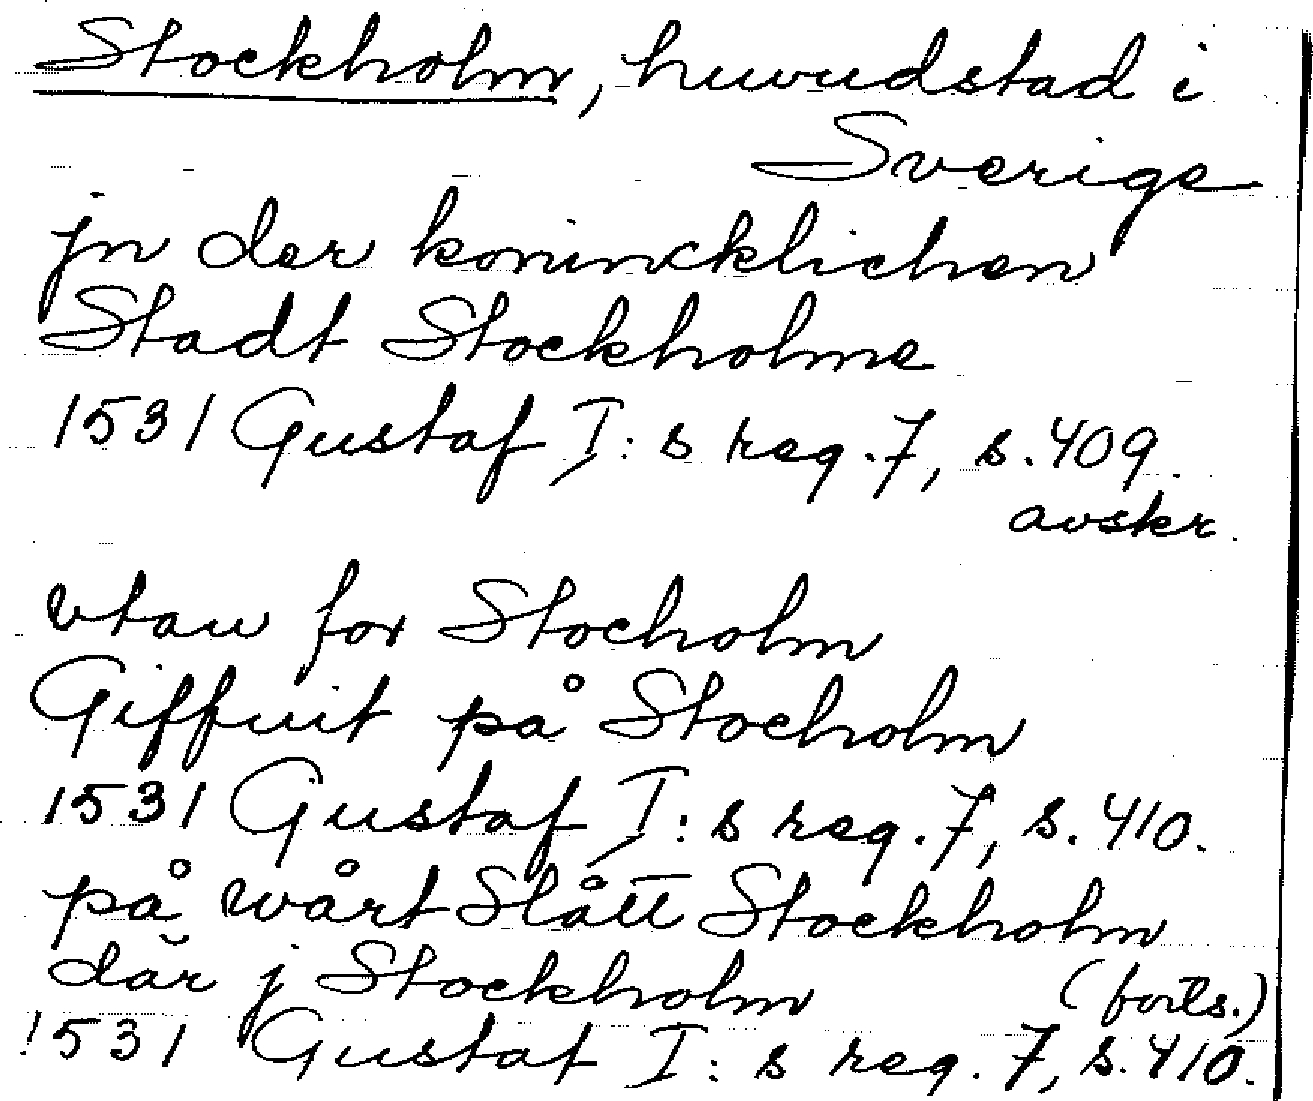 Stockholm, huvudstad i
Sverige
jn der konincklichen
Stadt Stockholme
1531 Gustaf I:s reg. 7, s. 409
avskr.
vtaw for Stocholm
Giffuit på Stocholm
1531 Gustaf I:s reg. 7, s. 410.
på wårt Slått Stockholm
där j Stockholm (forts.)
1531 Gustaf I:s reg. 7, s. 410.